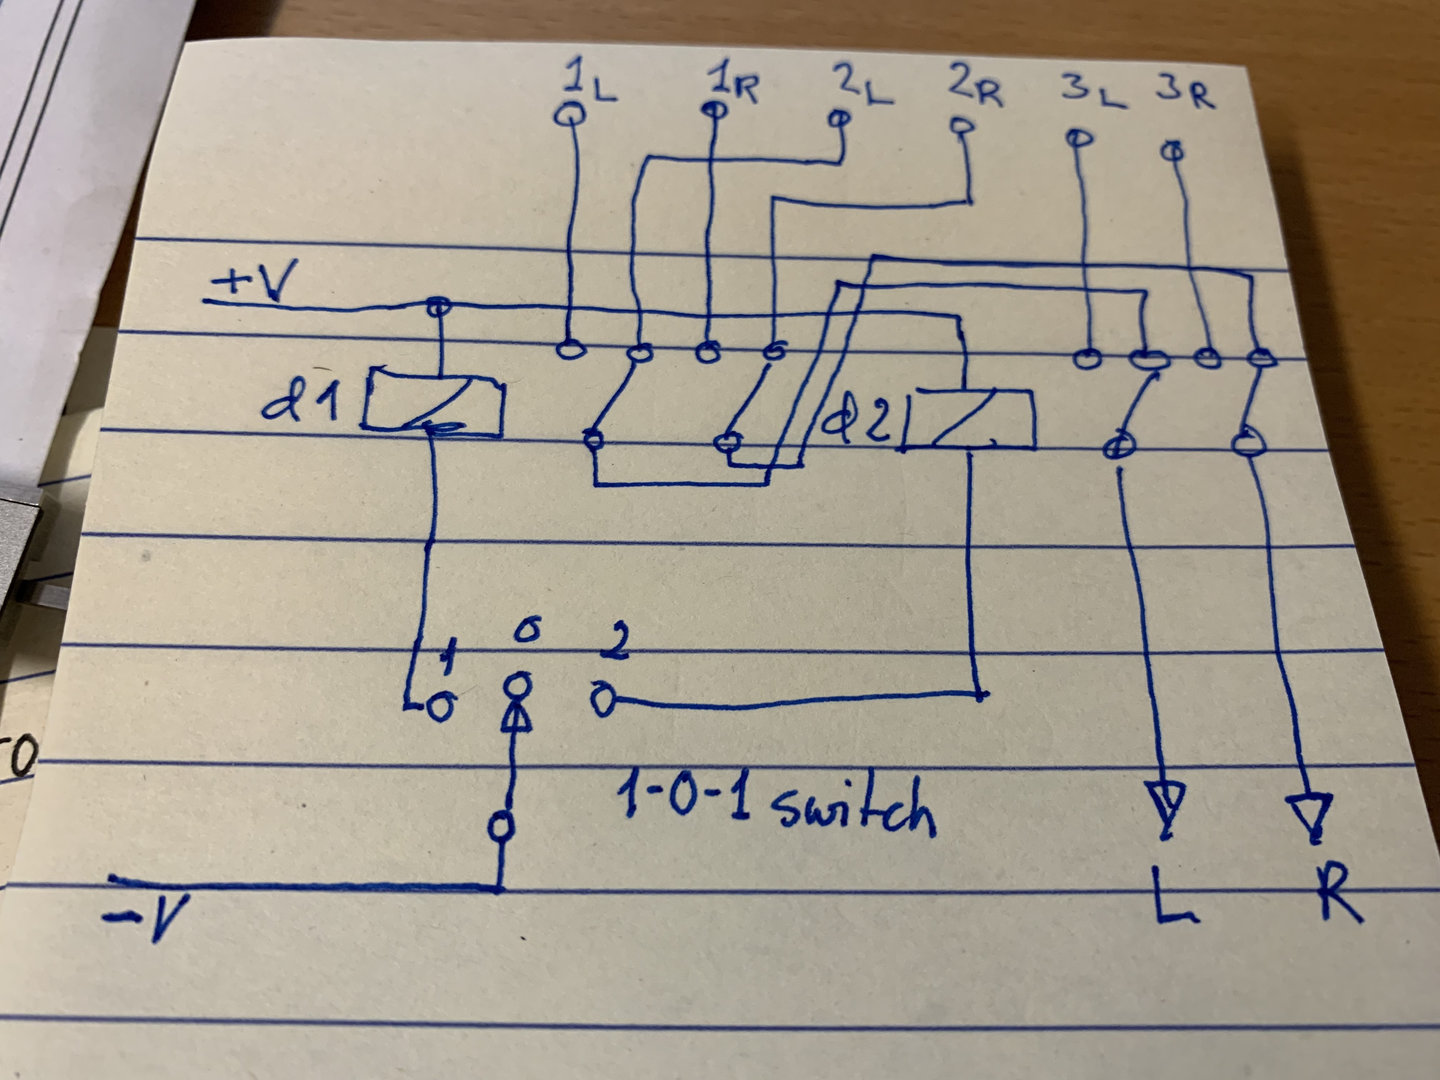 1L 1R 2L 2R 3L 3R
+V
d1
d2
1 0 2
1-0-1 switch
-V
L R
TO